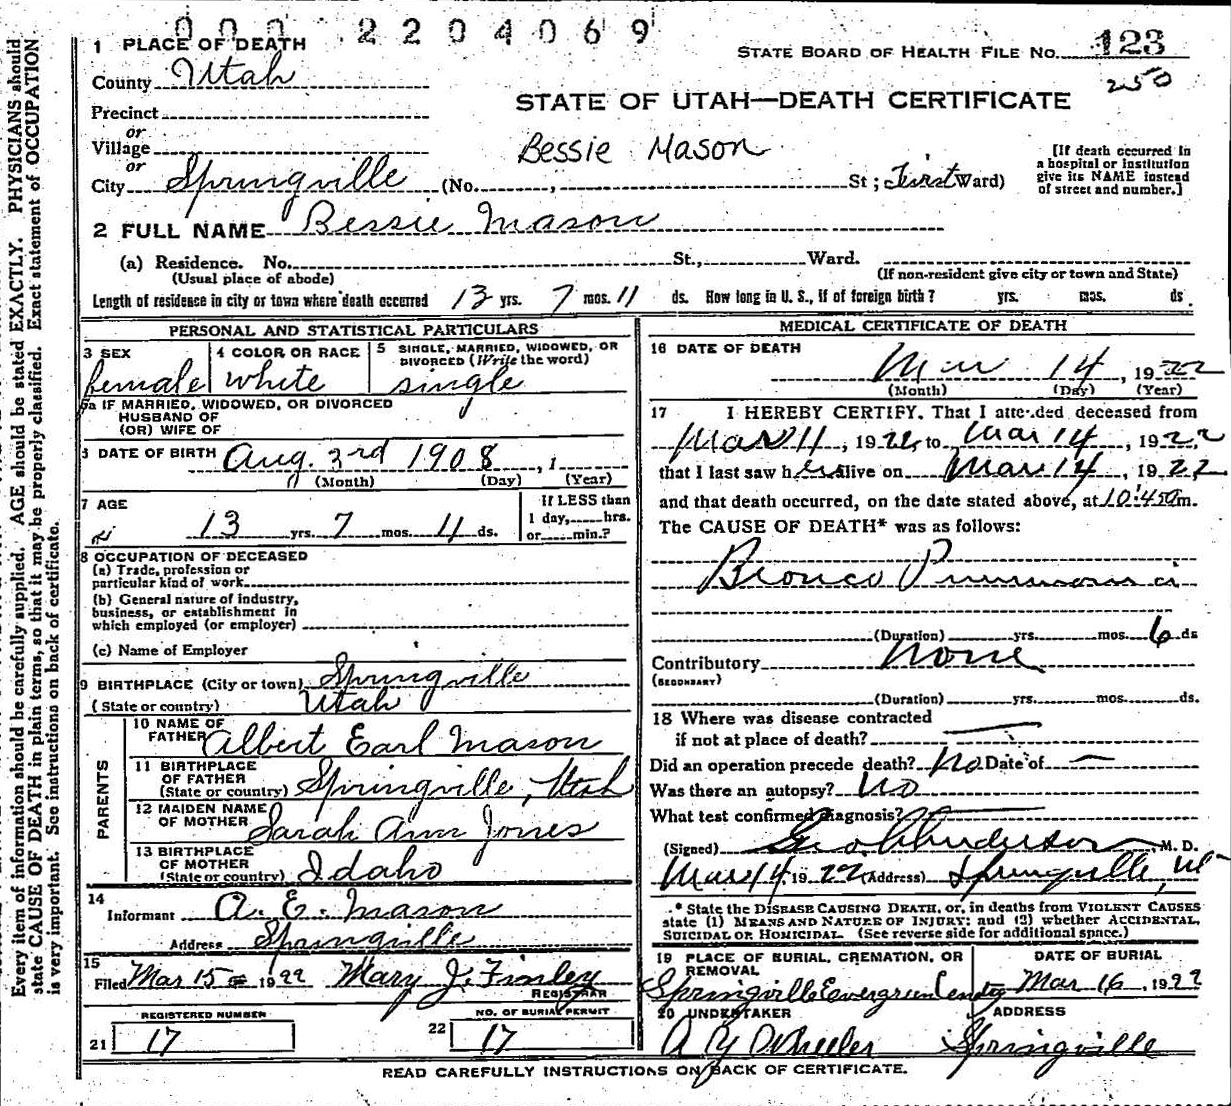 0 0 0 2 2 0 4 0 6 9
STATE BOARD OF HEALTH FILE No. 123
250
STATE OF UTAH—DEATH CERTIFICATE
1 PLACE OF DEATH
County Utah
Precinct
or
Village
or
City Springville (No. , St; First Ward)
Bessie Mason
[If death occurred in
a hospital or institution
give its NAME instead
of street and number.]
2 FULL NAME Bessie Mason
(a) Residence. No. St., Ward.
(Usual place of abode) (If non-resident give city or town and State)
Length of residence in city or town where death occurred 13 yrs. 7 mos. 11 ds. How long in U. S., if of foreign birth? yrs. mos. ds
PERSONAL AND STATISTICAL PARTICULARS
3 SEX
female
4 COLOR OR RACE
white
5 SINGLE, MARRIED, WIDOWED, OR
DIVORCED (Write the word)
single
5a IF MARRIED, WIDOWED, OR DIVORCED
HUSBAND OF
(OR) WIFE OF
DATE OF BIRTH Aug. 3rd 1908, 1
(Month) (Day) (Year)
7 AGE
13 yrs. 7 mos. 11 ds.
If LESS than
1 day, hrs.
or min.?
8 OCCUPATION OF DECEASED
(a) Trade, profession or
particular kind of work
(b) General nature of industry,
business, or establishment in
which employed (or employer)
(c) Name of Employer
9 BIRTHPLACE (City or town) Springville
(State or country) Utah
PARENTS
10 NAME OF
FATHER Albert Earl Mason
11 BIRTHPLACE
OF FATHER
(State or country) Springville, Utah
12 MAIDEN NAME
OF MOTHER Sarah Ann Jones
13 BIRTHPLACE
OF MOTHER
(State or country) Idaho
14
Informant A. E. Mason
Address Springville
15
Filed Mar 15 1922 Mary J. Finley
REGISTRAR
REGISTERED NUMBER
21 17
NO. OF BURIAL PERMIT
22 17
MEDICAL CERTIFICATE OF DEATH
16 DATE OF DEATH
Mar 14, 1922
(Month) (Day) (Year)
17 I HEREBY CERTIFY, That I attended deceased from
Mar 11, 1922, to Mar 14, 1922
that I last saw her alive on Mar 14, 1922
and that death occurred, on the date stated above, at 10:45am.
The CAUSE OF DEATH* was as follows:
Bronco Pneumonia
(Duration) yrs. mos. 6 ds
Contributory None
(SECONDARY)
(Duration) yrs. mos. ds.
18 Where was disease contracted
if not at place of death? —
Did an operation precede death? No Date of —
Was there an autopsy? No
What test confirmed diagnosis? —
(Signed) Geo Anderson M. D.
Mar 14, 1922 (Address) Springville, Ut
* State the DISEASE CAUSING DEATH, or, in deaths from VIOLENT CAUSES
state (1) MEANS AND NATURE OF INJURY; and (2) whether ACCIDENTAL,
SUICIDAL OR HOMICIDAL. (See reverse side for additional space.)
19 PLACE OF BURIAL, CREMATION, OR
REMOVAL
Springville Evergreen Cemetery
DATE OF BURIAL
Mar 16, 1922
20 UNDERTAKER
A Y Wheeler
ADDRESS
Springville
READ CAREFULLY INSTRUCTIONS ON BACK OF CERTIFICATE.
Every item of information should be carefully supplied. AGE should be stated EXACTLY. PHYSICIANS should
state CAUSE OF DEATH in plain terms, so that it may be properly classified. Exact statement of OCCUPATION
is very important. See instructions on back of certificate.